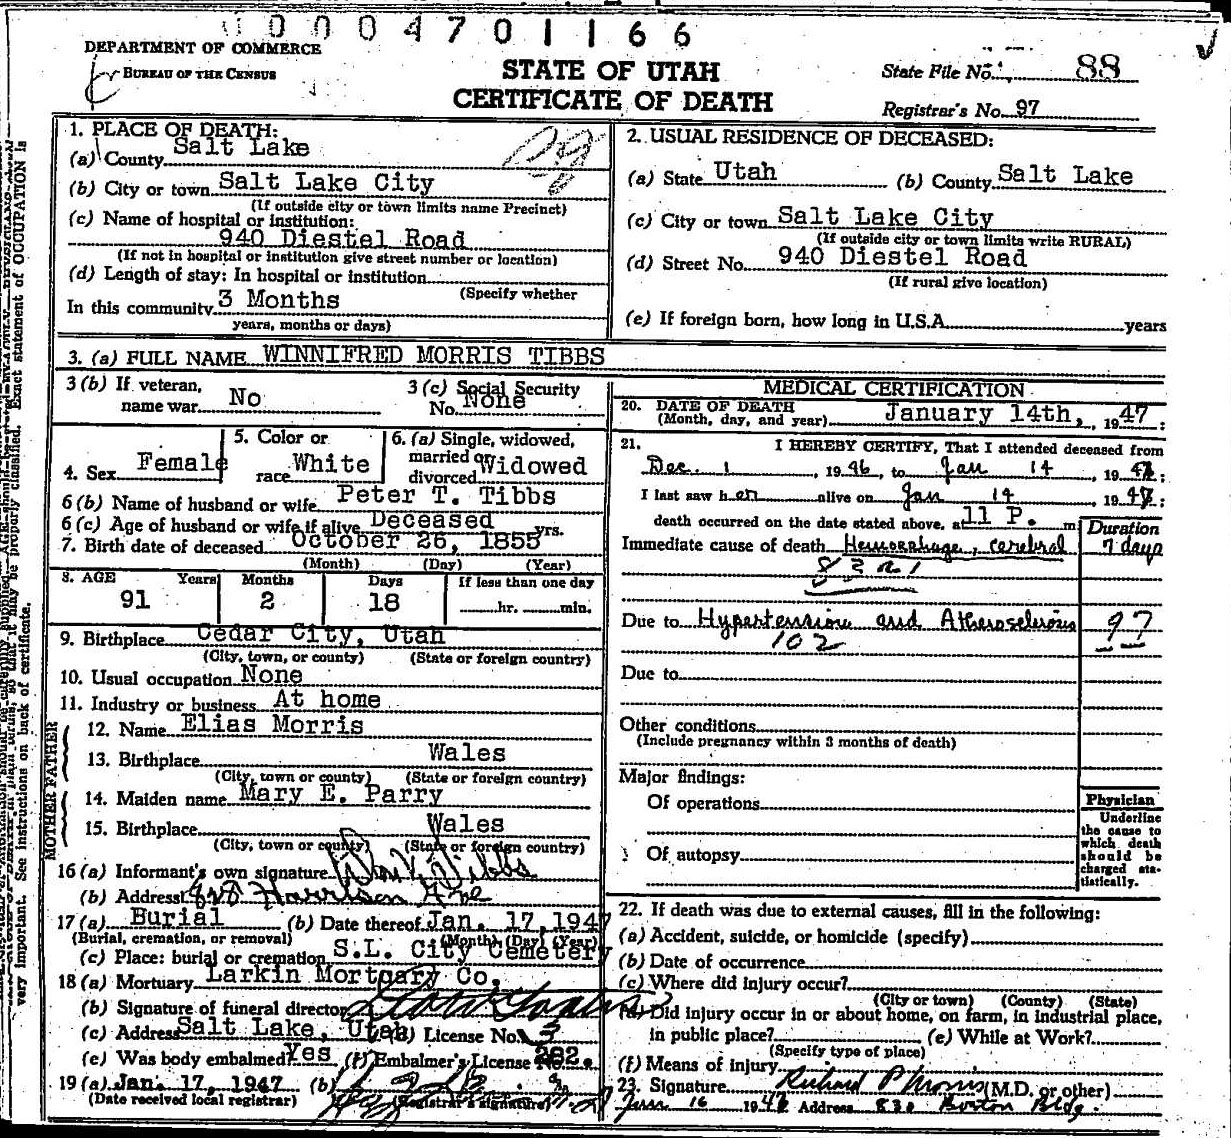 0004701166
DEPARTMENT OF COMMERCE
BUREAU OF THE CENSUS
STATE OF UTAH
CERTIFICATE OF DEATH
State File No. 88
Registrar's No. 97
1. PLACE OF DEATH:
(a) County Salt Lake
(b) City or town Salt Lake City
(If outside city or town limits name Precinct)
(c) Name of hospital or institution:
940 Diestel Road
(If not in hospital or institution give street number or location)
(d) Length of stay: In hospital or institution
(Specify whether
In this community 3 Months
years, months or days)
2. USUAL RESIDENCE OF DECEASED:
(a) State Utah (b) County Salt Lake
(c) City or town Salt Lake City
(If outside city or town limits write RURAL)
(d) Street No. 940 Diestel Road
(If rural give location)
(e) If foreign born, how long in U.S.A. years
3. (a) FULL NAME WINNIFRED MORRIS TIBBS
3 (b) If veteran, name war No
3 (c) Social Security No. None
4. Sex Female
5. Color or race White
6. (a) Single, widowed, married or divorced Widowed
6 (b) Name of husband or wife Peter T. Tibbs
6 (c) Age of husband or wife if alive Deceased yrs.
7. Birth date of deceased October 26, 1855
(Month) (Day) (Year)
8. AGE Years Months Days If less than one day
91 2 18 hr. min.
9. Birthplace Cedar City, Utah
(City, town, or county) (State or foreign country)
10. Usual occupation None
11. Industry or business At home
FATHER
12. Name Elias Morris
13. Birthplace Wales
(City, town or county) (State or foreign country)
MOTHER
14. Maiden name Mary E. Parry
15. Birthplace Wales
(City, town or county) (State or foreign country)
16 (a) Informant's own signature Tibbs
(b) Address Harrison Ave
17 (a) Burial (b) Date thereof Jan. 17, 1947
(Burial, cremation, or removal) (Month) (Day) (Year)
(c) Place: burial or cremation S.L. City Cemetery
18 (a) Mortuary Larkin Mortuary Co.
(b) Signature of funeral director
(c) Address Salt Lake, Utah (d) License No. 3
(e) Was body embalmed? Yes (f) Embalmer's License No. 282.
19 (a) Jan. 17, 1947 (b)
(Date received local registrar) (Registrar's signature)
MEDICAL CERTIFICATION
20. DATE OF DEATH
(Month, day, and year) January 14th, 1947
21. I HEREBY CERTIFY, That I attended deceased from
Dec. 1, 1946, to Jan 14, 1947;
I last saw her alive on Jan 14, 1947;
death occurred on the date stated above, at 11 P. m
Duration
Immediate cause of death Hemorrhage, cerebral 7 days
Due to Hypertension and Atherosclerosis 97
102
Due to
Other conditions
(Include pregnancy within 3 months of death)
Major findings:
Of operations
Of autopsy
Physician
Underline
the cause to
which death
should be
charged sta-
tistically.
22. If death was due to external causes, fill in the following:
(a) Accident, suicide, or homicide (specify)
(b) Date of occurrence
(c) Where did injury occur?
(City or town) (County) (State)
(d) Did injury occur in or about home, on farm, in industrial place,
in public place? (e) While at Work?
(Specify type of place)
(f) Means of injury
23. Signature Richard P Morris (M.D. or other)
Jan 16 1947 Address 830 Boston Bldg.
Exact statement of OCCUPATION is
very important. See instructions on back of certificate.